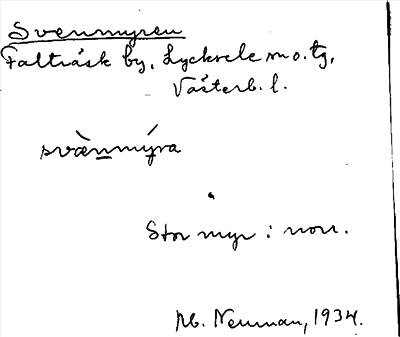 Svenmyren
Falträsk by, Lycksele m o. tg,
Västerb. l.
svæ̀nmýra
Stor myr i norr.
Neuman, 1934.